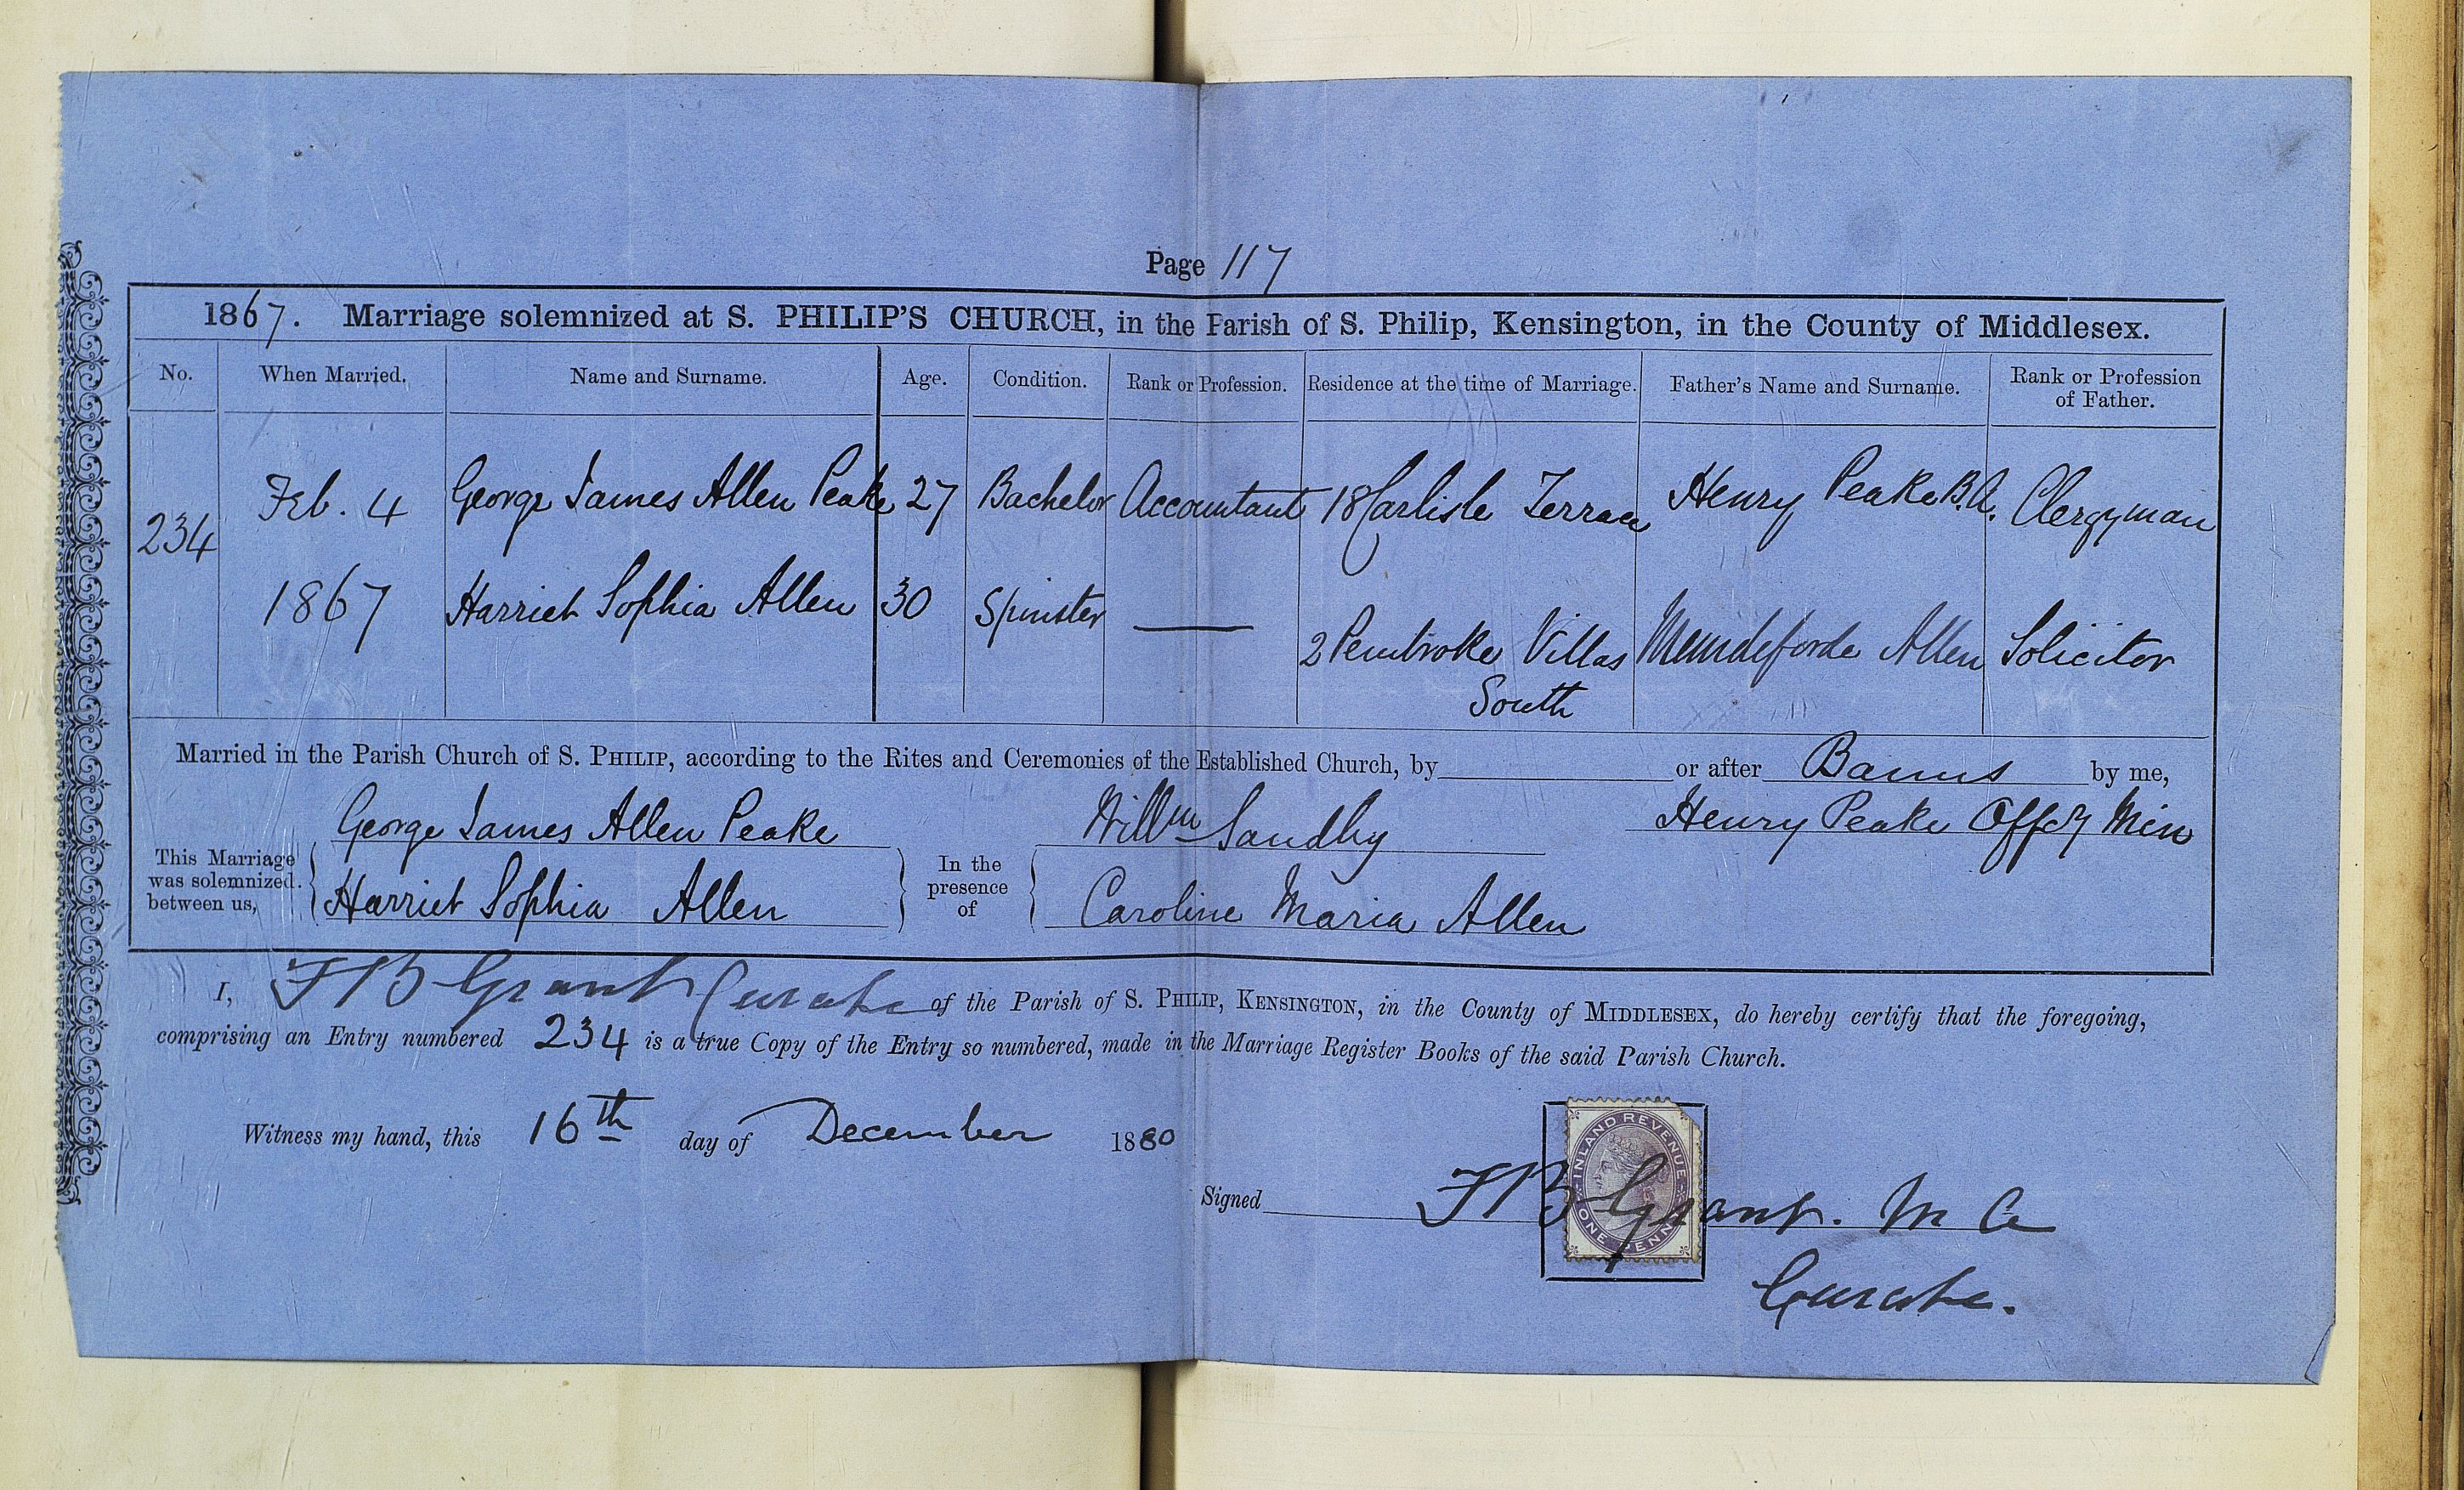 Page 117
1867. Marriage solemnized at S. PHILIP'S CHURCH, in the Parish of S. Philip, Kensington, in the County of Middlesex.
No. When Married. Name and Surname. Age. Condition. Rank or Profession. Residence at the time of Marriage. Father's Name and Surname. Rank or Profession of Father.
234 Feb. 4 George James Allen Peake 27 Bachelor Accountant 18 Carlisle Terrace Henry Peake B.A. Clergyman
1867 Harriet Sophia Allen 30 Spinster — 2 Pembroke Villas South Mundeforde Allen Solicitor
Married in the Parish Church of S. PHILIP, according to the Rites and Ceremonies of the Established Church, by or after Banns by me,
George James Allen Peake Willm Sandby Henry Peake Offcg Min
This Marriage was solemnized between us, In the presence of
Harriet Sophia Allen Caroline Maria Allen
I, F B Grant Curate of the Parish of S. PHILIP, KENSINGTON, in the County of MIDDLESEX, do hereby certify that the foregoing,
comprising an Entry numbered 234 is a true Copy of the Entry so numbered, made in the Marriage Register Books of the said Parish Church.
Witness my hand, this 16th day of December 1880
INLAND REVENUE
ONE PENNY
Signed F B Grant. M A
Curate.